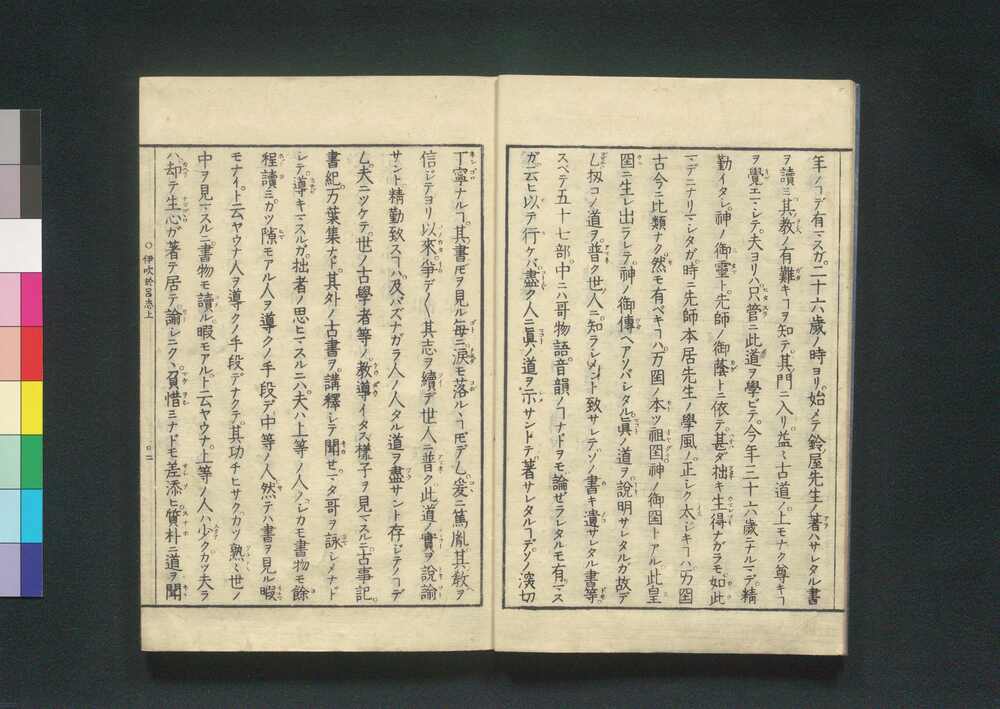 年ノコデ有マスガ。二十六歳ノ時ヨリ始メテ鈴屋先生ノ著ハサレタル書
ヲ讀ミ其教ノ有難キコヲ知テ其門ニ入リ益々古道ノ上モナク尊キコ
ヲ覺エマシテ。夫ヨリハ只管ニ此道ヲ學ビテ。今年三十六歳ニナルマデ。精
勤イタシ。神ノ御靈ト先師ノ御蔭トニ依テ。甚ダ拙キ生得ナガラモ。如此
マデニナリマシタガ。時ニ先師本居先生ノ學風ノ正シク太ジキコハ。万囶
古今ニ比類ナク。然モ有ベキコハ。万囶ノ本ツ祖囶神ノ御囶トアル此皇
囶ニ生レ出ラレテ。神ノ御傳ヘアソバシタル眞ノ道ヲ說明サレタルガ故デ
乚扨コノ道ヲ普ク世人ニ知ラシメント致サレテ。ソノ書キ遺サレタル書等。
スベテ五十七部。中ニハ哥物語音韻ノコナドヲモ論ゼラレタルモ有マス
ガ。云ヒ以テ行ケバ。盡ク人ニ眞ノ道ヲ示サントテ。著サレタルコデ。ソノ深切
丁寧ナルコ。其書𪜈ヲ見ル毎ニ淚モ落ルヽコ𪜈デ乚爰ニ篤胤其教ヲ
信ジテヨリ以來。爭デ〳〵其志ヲ續デ世人ニ普ク此道ノ實ヲ說諭
サント精勤致スコハ。及バズナガラ人ノ人タル道ヲ盡サント存ジテノコデ
乚夫ニツケテ世ノ古學者等ノ教導イタス樣子ヲ見マスルニ。古事記。
書紀。万葉集ナド。其外ノ古書ヲ。講釋シテ聞セ。マタ哥ヲ詠シメナド
シテ。導キマスルガ。拙者ノ思ヒマスルニハ。夫ハ上等ノ人ノ。シカモ書物モ餘
程讀ミ。カツ隙モアル人ヲ導クノ手段デ。中等ノ人。然テハ書ヲ見ル暇
モナイト云ヤウナ人ヲ導クノ手段デナクテ。其功チヒサク。カツ熟々世ノ
中ヲ見マスルニ。書物モ讀ル暇モアルト云ヤウナ。上等ノ人ハ少ク。カツ夫ラ
ハ却テ生心ガ著テ居テ諭シニクヽ負惜ミナドモ差添ヒ。質朴ニ道ヲ聞
○伊吹於呂志上
○二